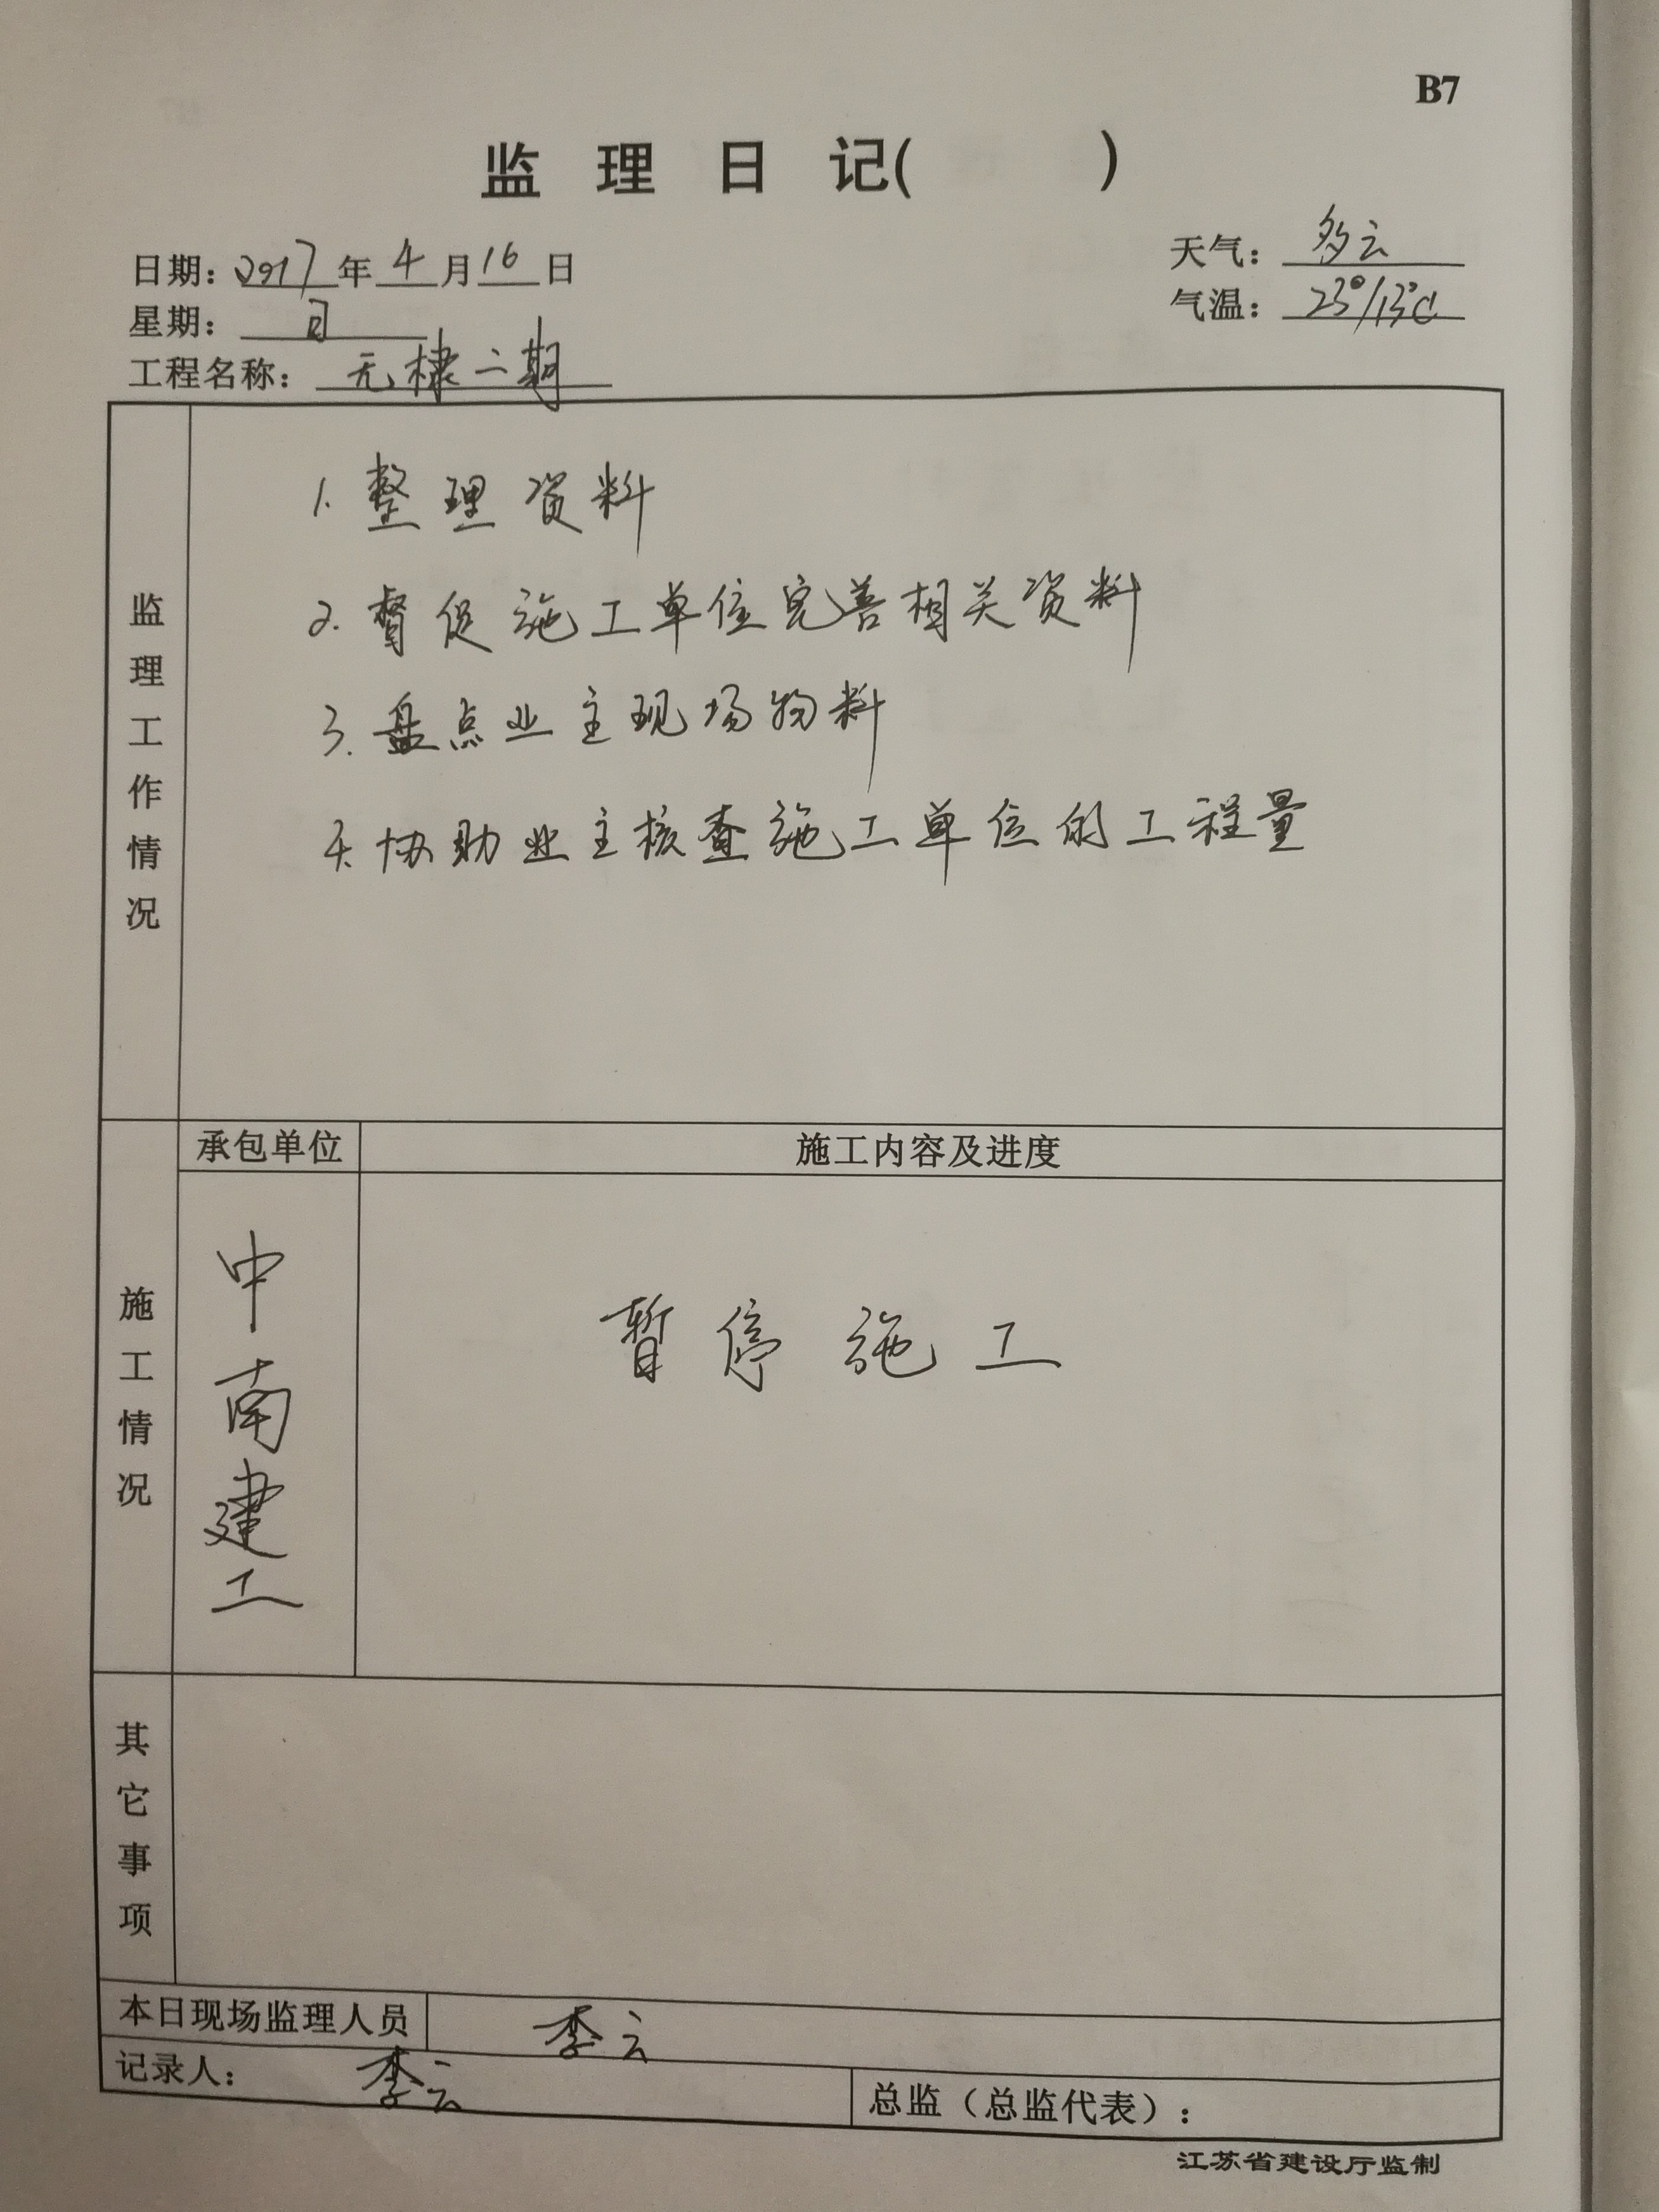 B7
监 理 日 记( )
日期: 2017 年 4 月 16 日
天气: 多云
星期: 日
气温: 23°/13℃
工程名称: 无棣二期
监理工作情况
1. 整理资料
2. 督促施工单位完善相关资料
3. 盘点业主现场物料
4. 协助业主核查施工单位的工程量
施工情况
承包单位 施工内容及进度
中南建工
暂停施工
其它事项
本日现场监理人员 李云
记录人: 李云
总监（总监代表）:
江苏省建设厅监制